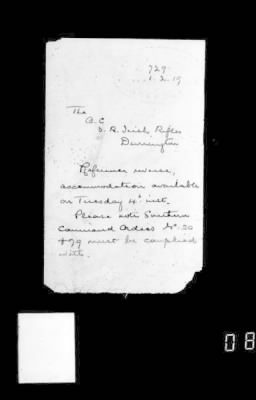 729
1.2.19
The
O.C
5. R. Irish Rifles
Durrington
Reference reverse,
accommodation available
on Tuesday 4th inst.
Please note Southern
Command Orders No. 20
& 79 must be complied
with.
08